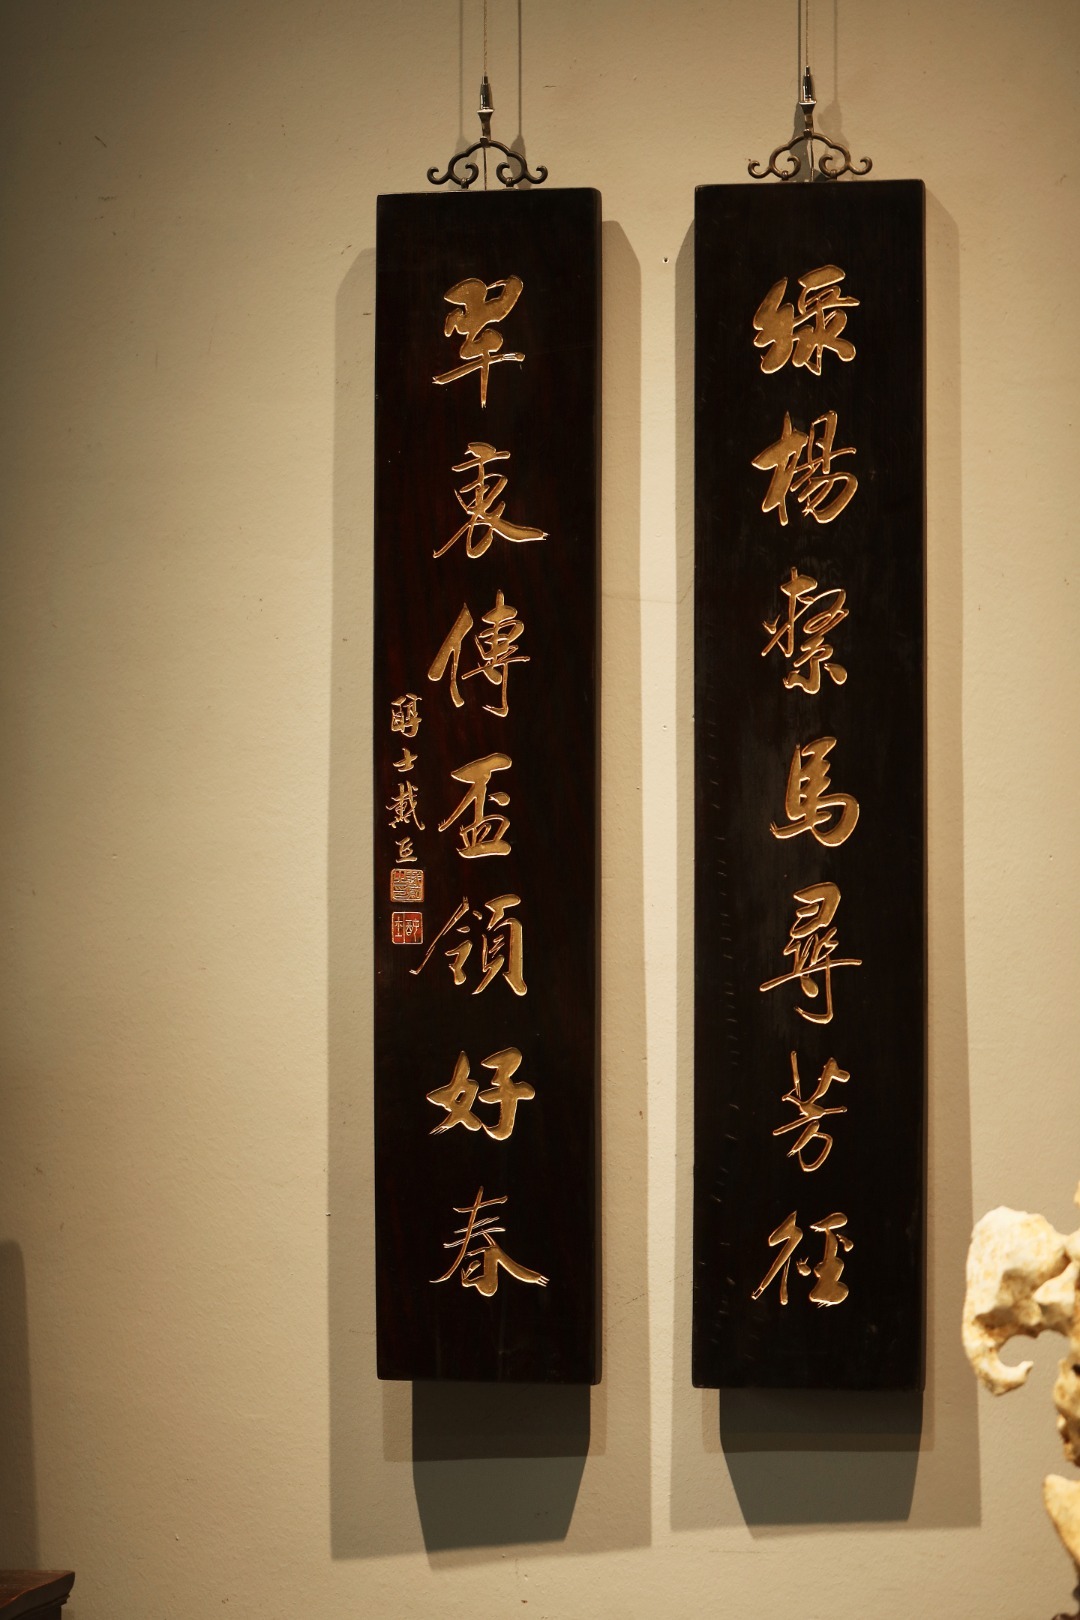 綠楊繫馬尋芳徑
翠傳盃領好春
醇士戴熙
醇士